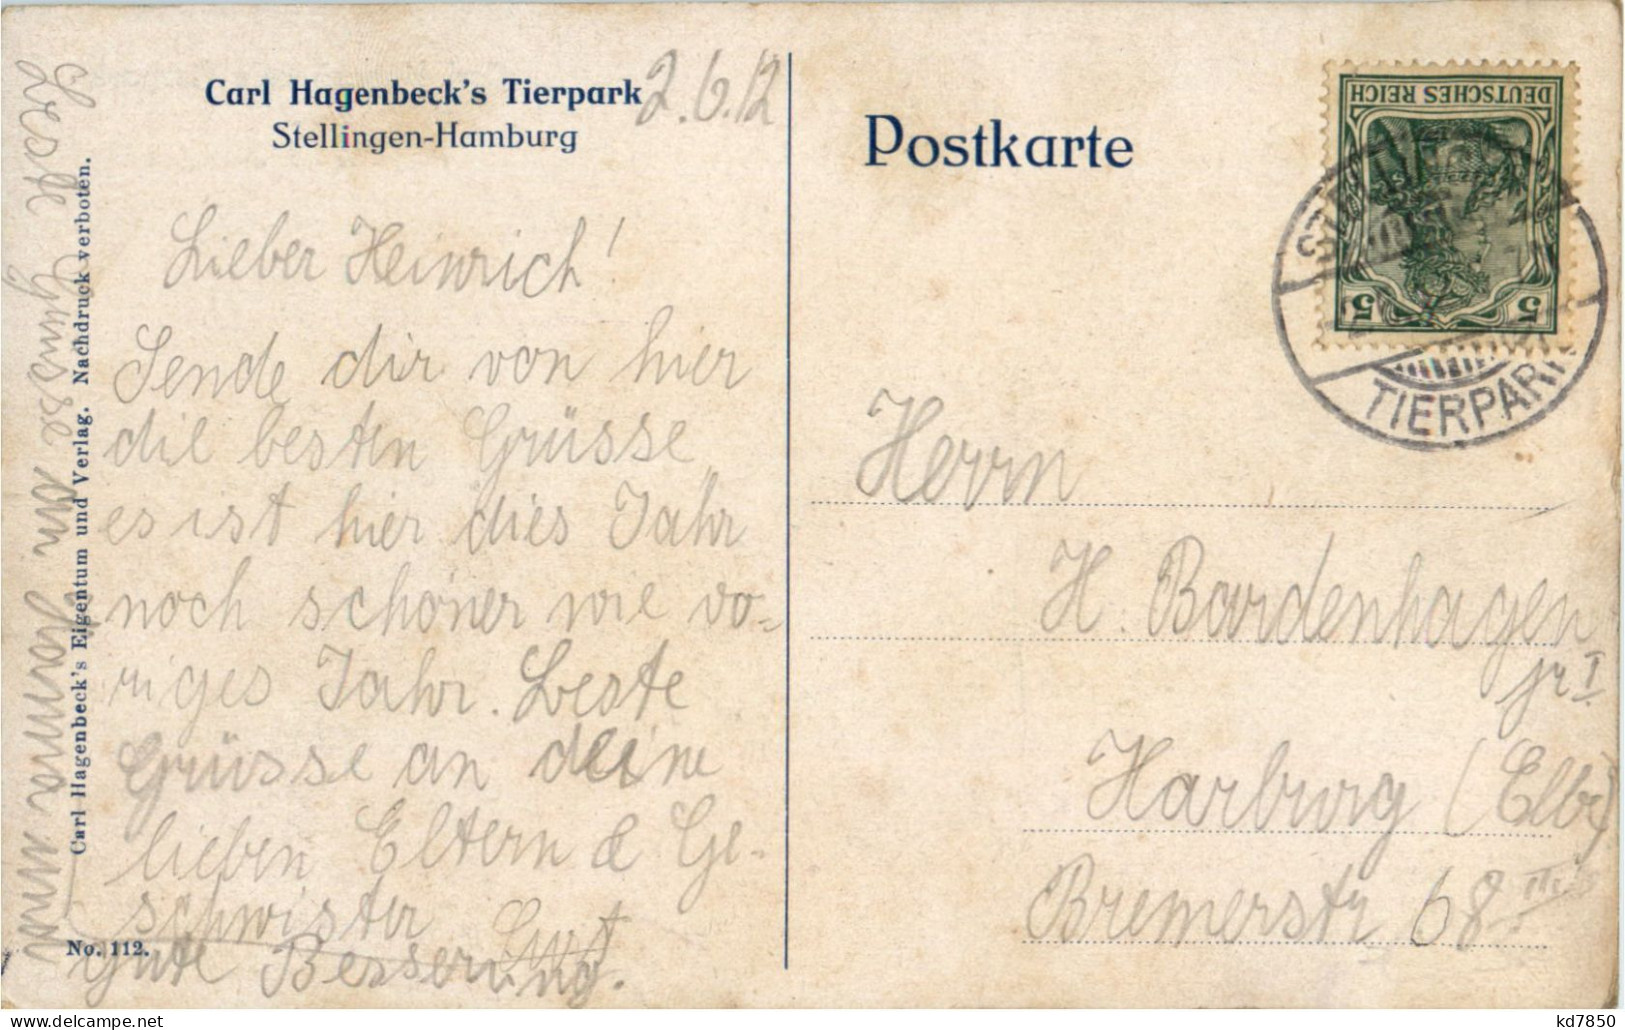 Carl Hagenbeck's Tierpark
Stellingen-Hamburg
2.6.12
Lieber Heinrich!
Sende dir von hier
die besten Grüsse
es ist hier dies Jahr
noch schöner wie vo-
riges Jahr. Beste
Grüsse an deine
lieben Eltern & Ge-
schwister Curt
Gute Besserung.
No. 112.
Carl Hagenbeck's Eigentum und Verlag. Nachdruck verboten.
Beste Grüsse von
Postkarte
DEUTSCHES REICH
5 5
TIERPARK
Herrn
H. Bardenhagen
jr I
Harburg (Elbe)
Bremerstr 68 III
kd7850